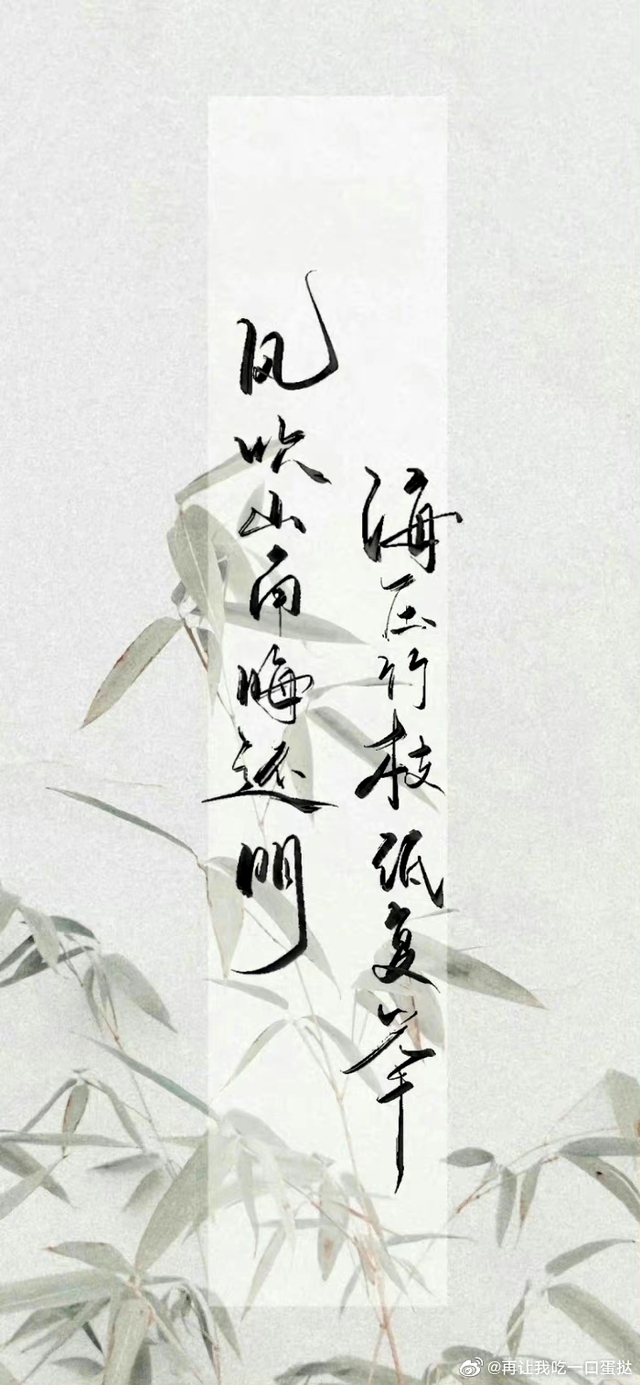 海压竹枝低复举
风吹山角晦还明
@再让我吃一口蛋挞